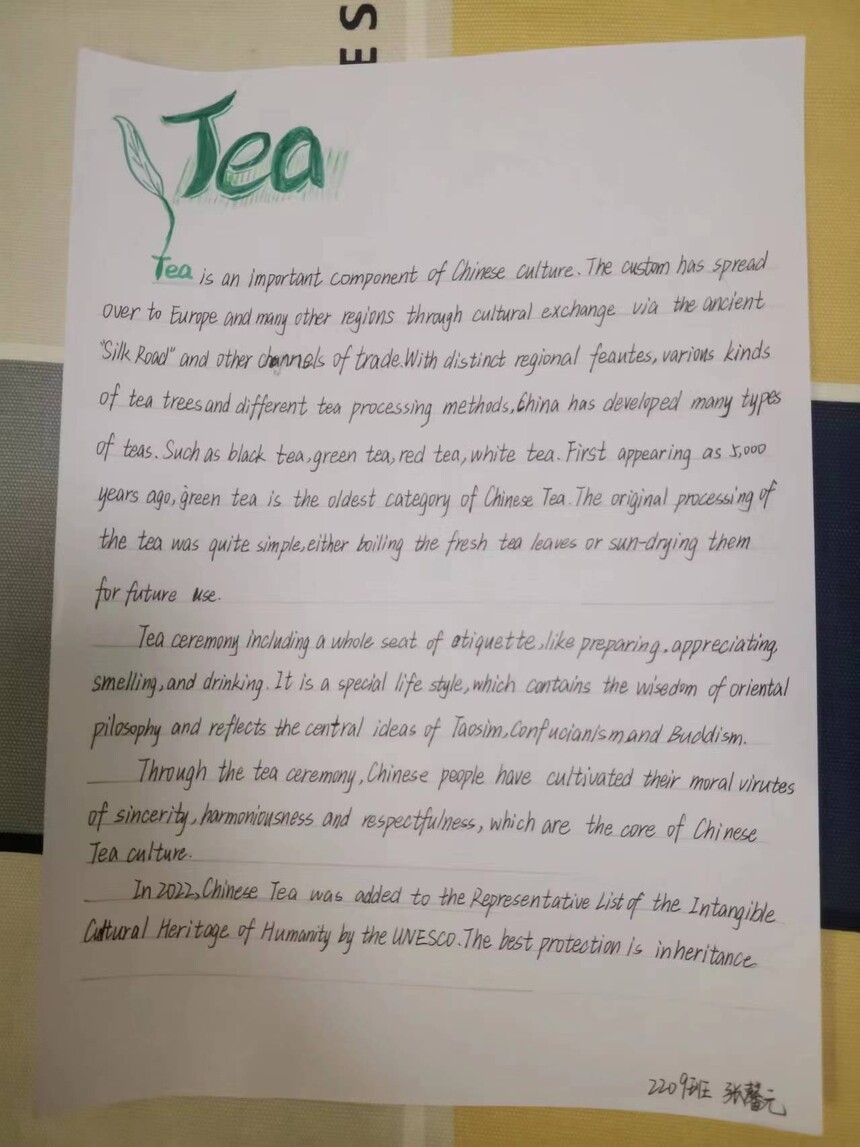 ES
Tea
Tea is an important component of Chinese culture. The custom has spread
over to Europe and many other regions through cultural exchange via the ancient
"Silk Road" and other channels of trade. With distinct regional feautes, various kinds
of tea trees and different tea processing methods, China has developed many types
of teas. Such as black tea, green tea, red tea, white tea. First appearing as 5,000
years ago, green tea is the oldest category of Chinese Tea. The original processing of
the tea was quite simple, either boiling the fresh tea leaves or sun-drying them
for future use.
Tea ceremony including a whole seat of etiquette, like preparing, appreciating,
smelling, and drinking. It is a special life style, which contains the wisedom of oriental
pilosophy and reflects the central ideas of Taosim, Confucianism and Buddism.
Through the tea ceremony, Chinese people have cultivated their moral virutes
of sincerity, harmoniousness and respectfulness, which are the core of Chinese
Tea culture.
In 2022, Chinese Tea was added to the Representative List of the Intangible
Cultural Heritage of Humanity by the UNESCO. The best protection is inheritance
2209班 张馨元